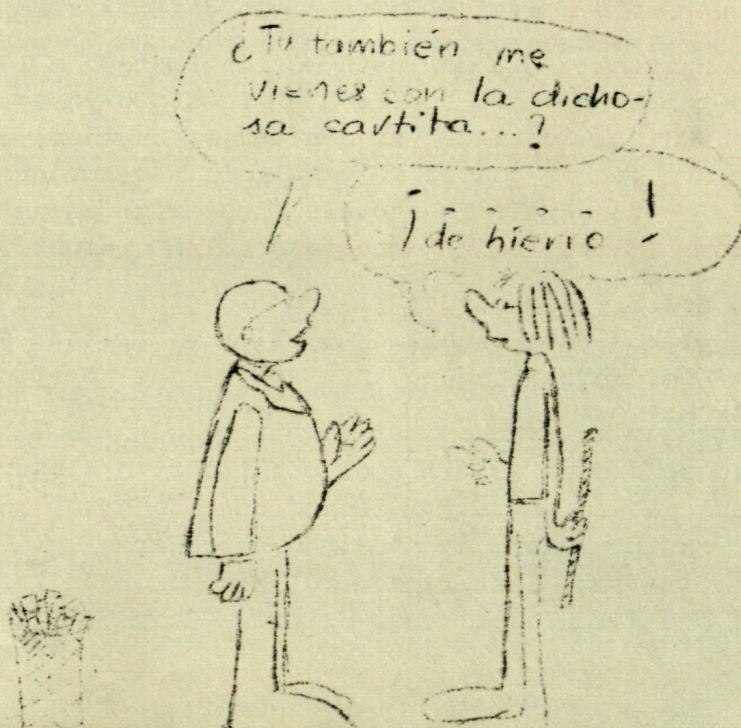 ¿Tu también me
vienes con la dicho-
sa cartita...?
¡ - - - - - !
de hierro